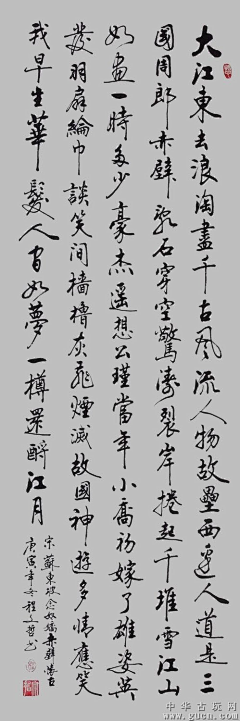 大江東去浪淘盡千古風流人物故壘西邊人道是三
國周郎赤壁亂石穿空驚濤裂岸捲起千堆雪江山
如畫一時多少豪杰遙想公瑾當年小喬初嫁了雄姿英
發羽扇綸巾談笑间檣櫓灰飛煙滅故國神遊多情應笑
我早生華髮人间如夢一樽還酹江月
宋蘇東坡念奴嬌赤壁懷古
庚寅年冬程文哲书
中华古玩网